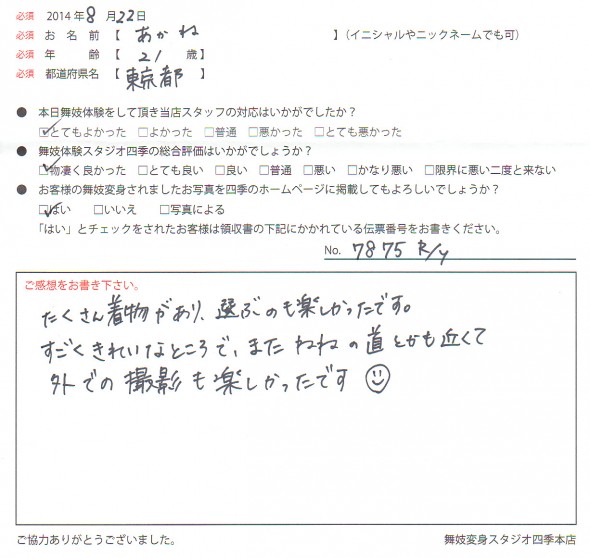 必須 2014年8月22日
必須 お名前【 あかね 】(イニシャルやニックネームでも可)
必須 年齢【 21 歳】
必須 都道府県名【 東京都 】
● 本日舞妓体験をして頂き当店スタッフの対応はいかがでしたか?
☑とてもよかった □よかった □普通 □悪かった □とても悪かった
● 舞妓体験スタジオ四季の総合評価はいかがでしょうか?
☑物凄く良かった □とても良い □良い □普通 □悪い □かなり悪い □限界に悪い二度と来ない
● お客様の舞妓変身されましたお写真を四季のホームページに掲載してもよろしいでしょうか?
☑はい □いいえ □写真による
「はい」とチェックをされたお客様は領収書の下記にかかれている伝票番号をお書きください。
No. 7875 R/y
ご感想をお書き下さい。
たくさん着物があり、選ぶのも楽しかったです。
すごくきれいなところで、また ねねの道とかも近くて
外での撮影も楽しかったです ☺
ご協力ありがとうございました。 舞妓変身スタジオ四季本店